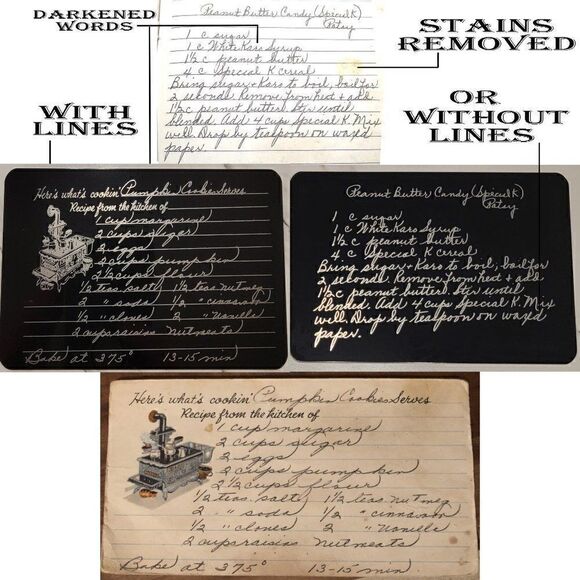 DARKENED
WORDS
Peanut Butter Candy (Special K)
Patsy
1 c sugar
1 c White Karo Syrup
1½ c peanut butter
4 c Special K cereal
Bring sugar + Karo to boil, boil for
2 seconds. Remove from heat + add
1½ c peanut butter. Stir until
blended. Add 4 cups Special K. Mix
well. Drop by teaspoon on waxd
paper.
STAINS
REMOVED
WITH
LINES
OR
WITHOUT
LINES
Here's what's cookin' Pumpkin Cookies Serves
Recipe from the kitchen of
1 cup margarine
2 cups sugar
2 eggs
2 cups pumpkin
2 ½ cups flour
½ teas. salt 1½ teas nutmeg
2 " soda ½ " cinnamon
½ " cloves 2 " Vanilla
2 cups raisins nutmeats
Bake at 375° 13-15 min
Peanut Butter Candy (Special K)
Patsy
1 c sugar
1 c White Karo Syrup
1½ c peanut butter
4 c Special K cereal
Bring sugar + Karo to boil, boil for
2 seconds. Remove from heat + add
1½ c peanut butter. Stir until
blended. Add 4 cups Special K. Mix
well. Drop by teaspoon on waxd
paper.
Here's what's cookin' Pumpkin Cookies Serves
Recipe from the kitchen of
1 cup margarine
2 cups sugar
2 eggs
2 cups pumpkin
2 ½ cups flour
½ teas. salt 1½ teas nutmeg
2 " soda ½ " cinnamon
½ " cloves 2 " Vanilla
2 cups raisins nutmeats
Bake at 375° 13-15 min.